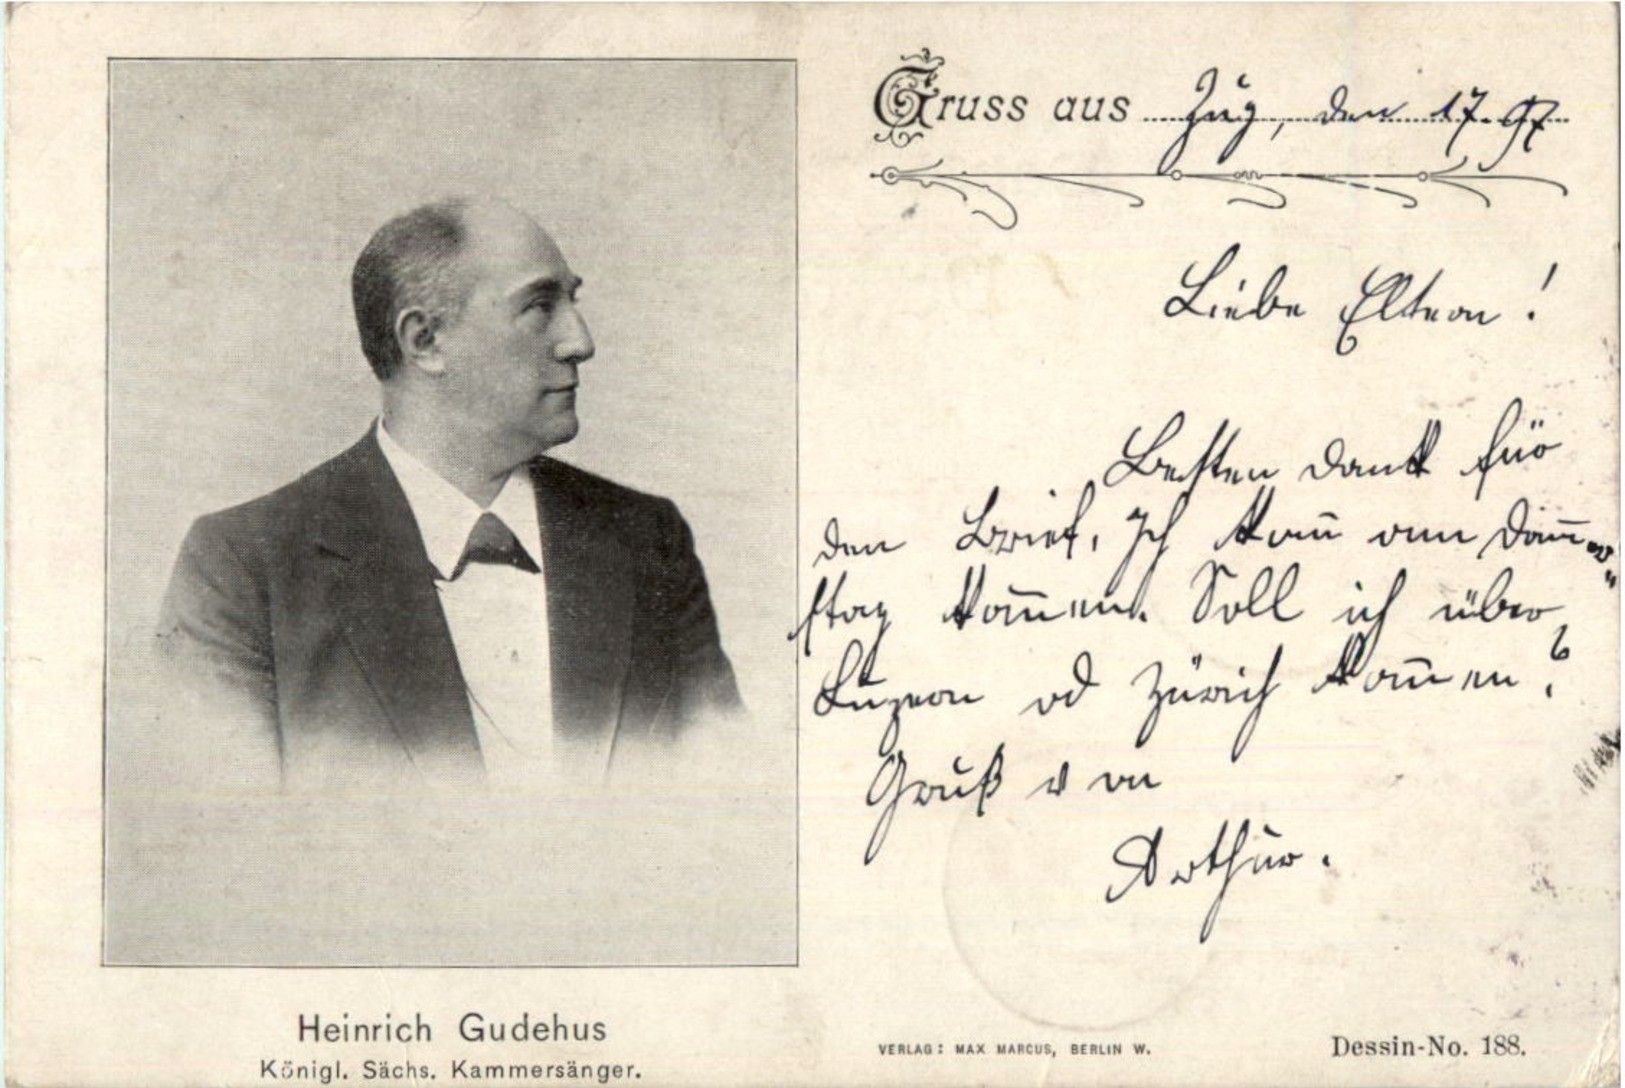 Gruss aus Zug, den 17. 97
Liebe Eltern!
Besten Dank für
den Brief. Ich kan̄ am Don̄er-
stag kom̄en. Soll ich über
Luzern od Zürich kom̄en?
Gruß von
Arthur.
Heinrich Gudehus
Königl. Sächs. Kammersänger.
VERLAG: MAX MARCUS, BERLIN W.
Dessin-No. 188.